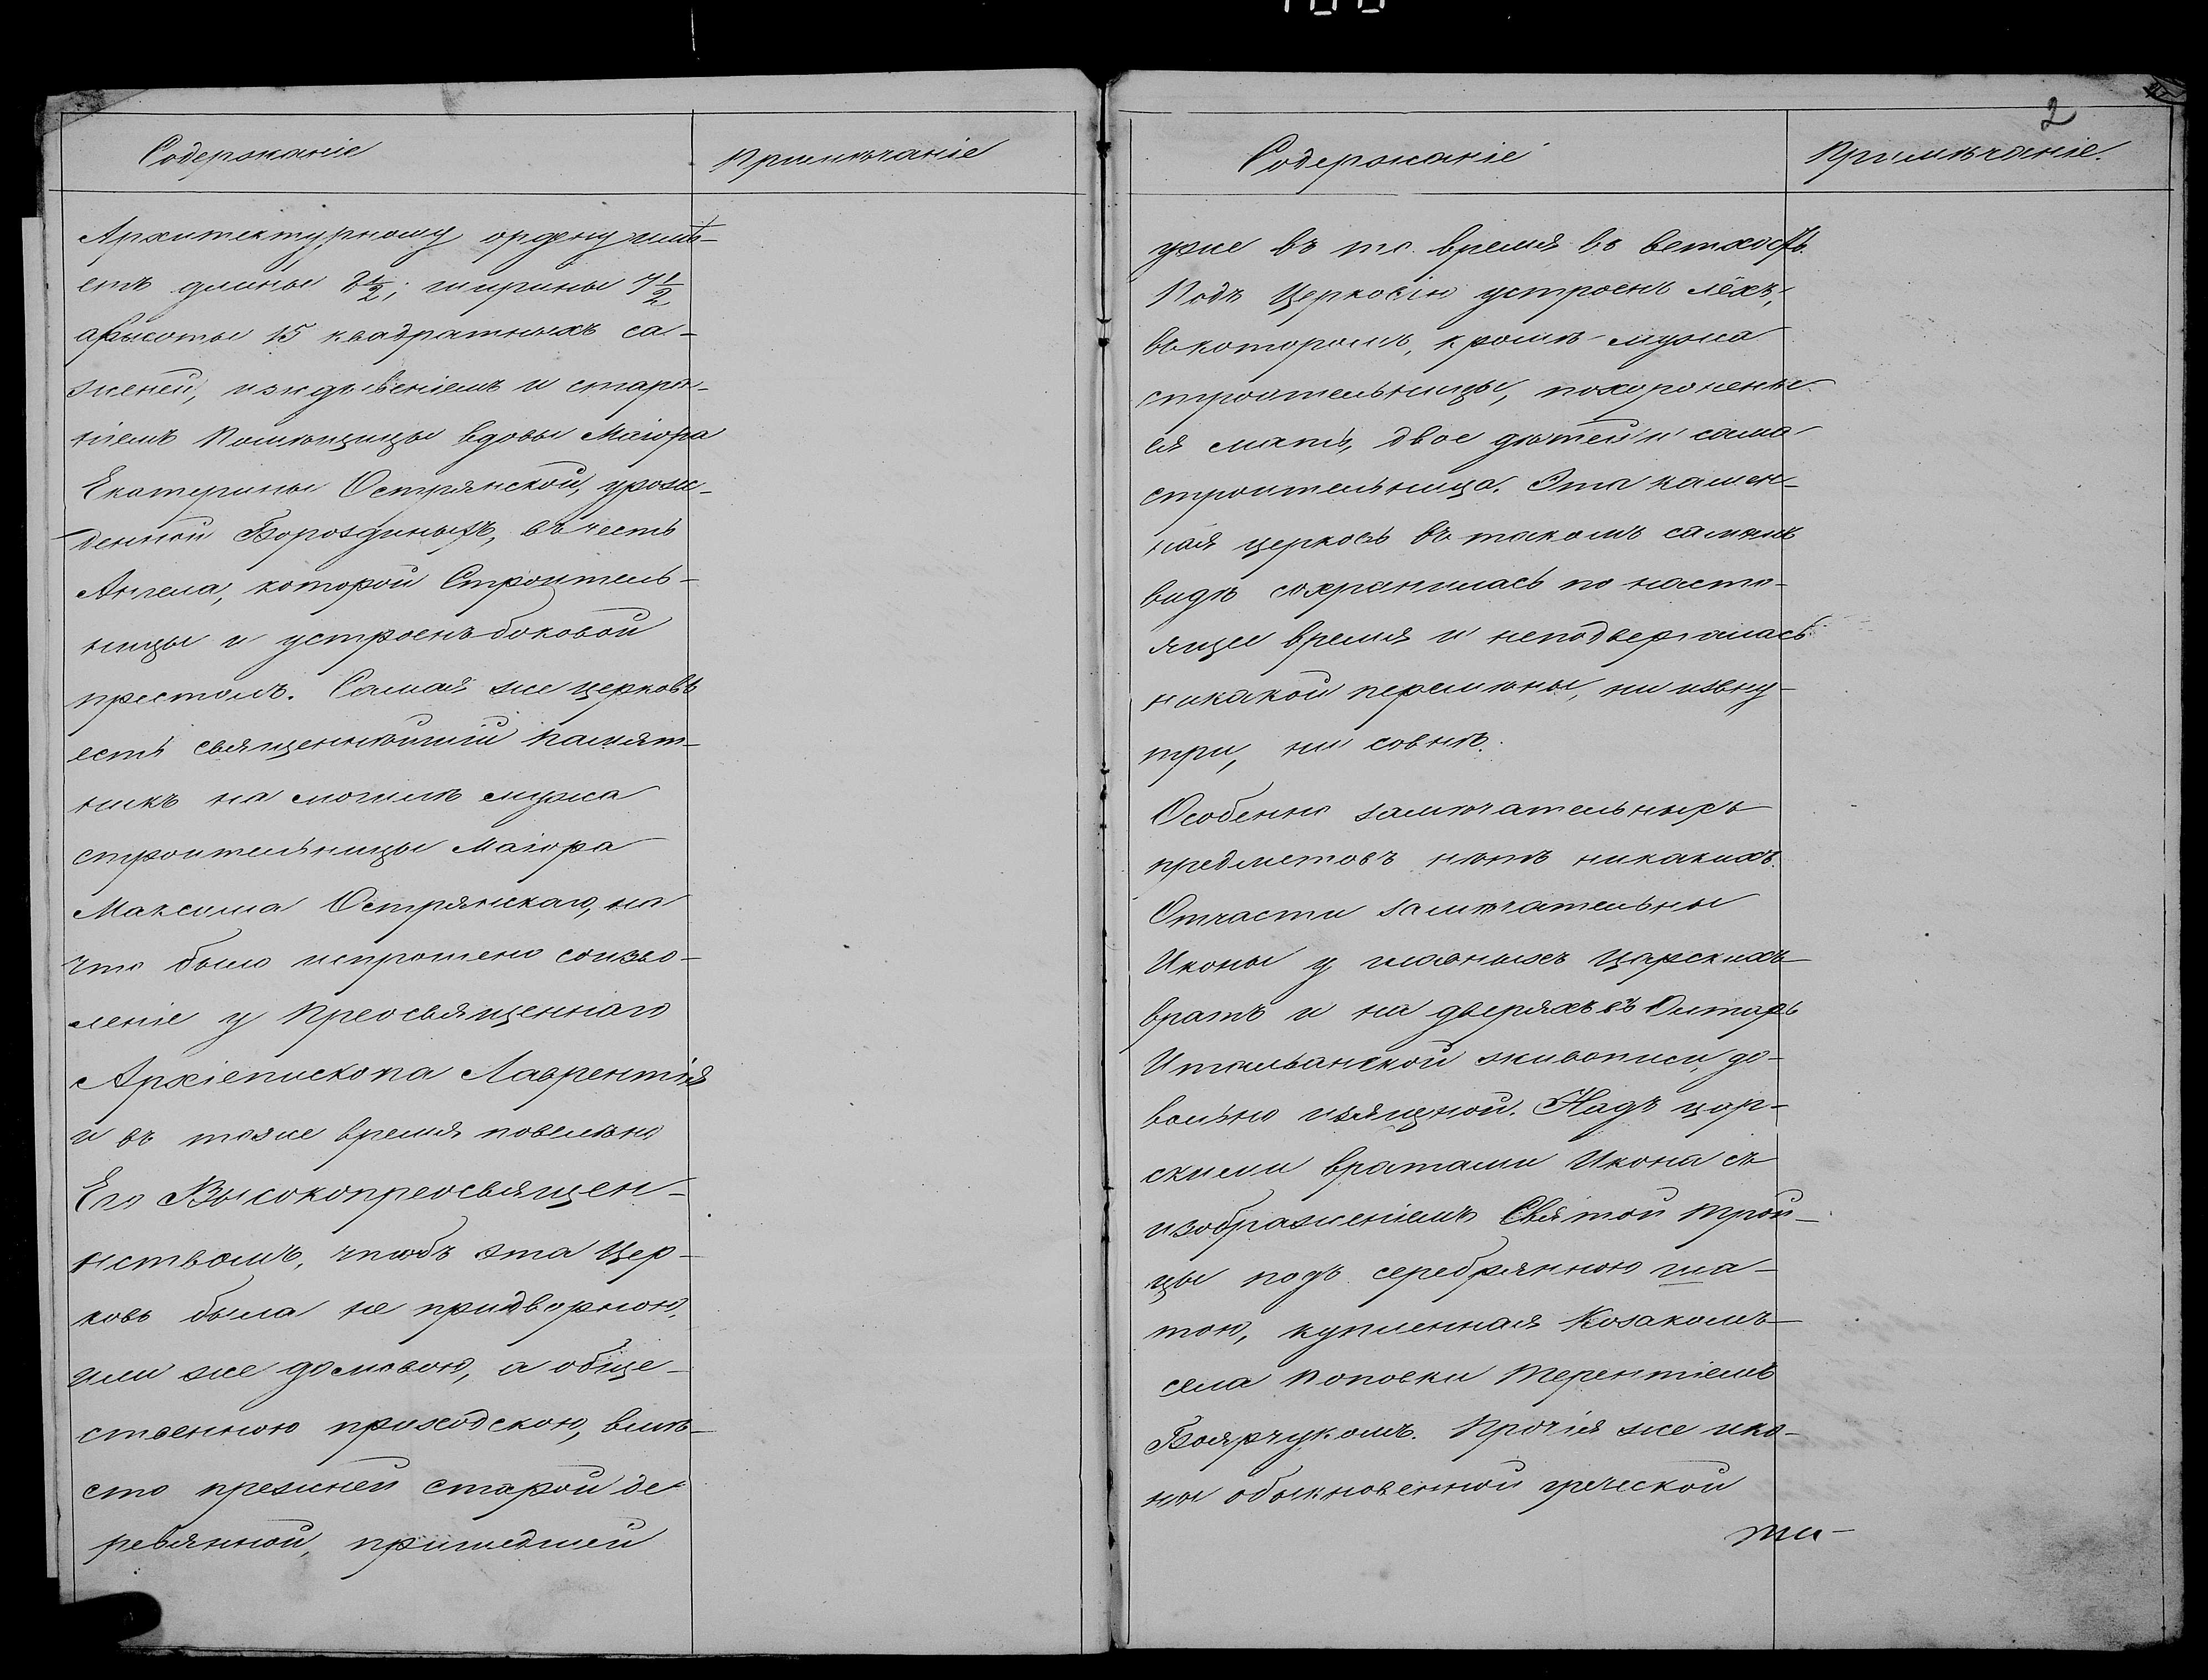 Содержаніе
Примѣчаніе
Архитектурному ордену имѣ-
етъ длины 8½; ширины 7½,
а высоты 15 квадратныхъ са-
женей, иждивеніемъ и старa-
ніемъ Помѣщицы вдовы Маіора
Екатерины Острянской, урож-
денной Бороздиныхъ, въ честь
Ангела, которой Строитель-
ницы и устроенъ боковой
престолъ. Самая же церковь
есть священнѣйшій памят-
никъ на могилѣ мужа
строительницы Маіора
Максима Острянскаго, на
что было испрошено соизво-
леніе у Преосвященнаго
Архіепископа Лаврентія
и въ тоже время повелѣно
Его Высокопреосвящен-
нствомъ, чтобъ эта Цер-
ковь была не придворною,
или же домовою, а обще-
ственною приходскою, вмѣ-
сто прежней старой де-
ревянной, пришедшей
2
Содержаніе
Примѣчаніе.
уже въ то время въ ветхость.
Подъ Церковію устроенъ лёхъ,
въ которомъ, кромѣ мужа
строительницы, похоронены
ея мать, двое дѣтей и сама
строительница. Эта камен-
ная церковь въ такомъ самомъ
видѣ сохранилась по насто-
ящее время и неподвергалась
никакой перемѣны, ни извну-
три, ни совнѣ.
Особенно замѣчательныхъ
предметовъ нѣтъ никакихъ.
Отчасти замѣчательны
Иконы у главныхъ Царскихъ
вратъ и на дверяхъ въ Олтарь
Итальянской живописи, до-
вольно изящной. Надъ цар-
скими вратами Икона съ
изображеніемъ Святой Трой-
цы подъ серебрянною ша-
тою, купленная Козакомъ
села Поповки Терентіемъ
Боярчукомъ. Прочія же ико-
ны обыкновенной греческой
жи-